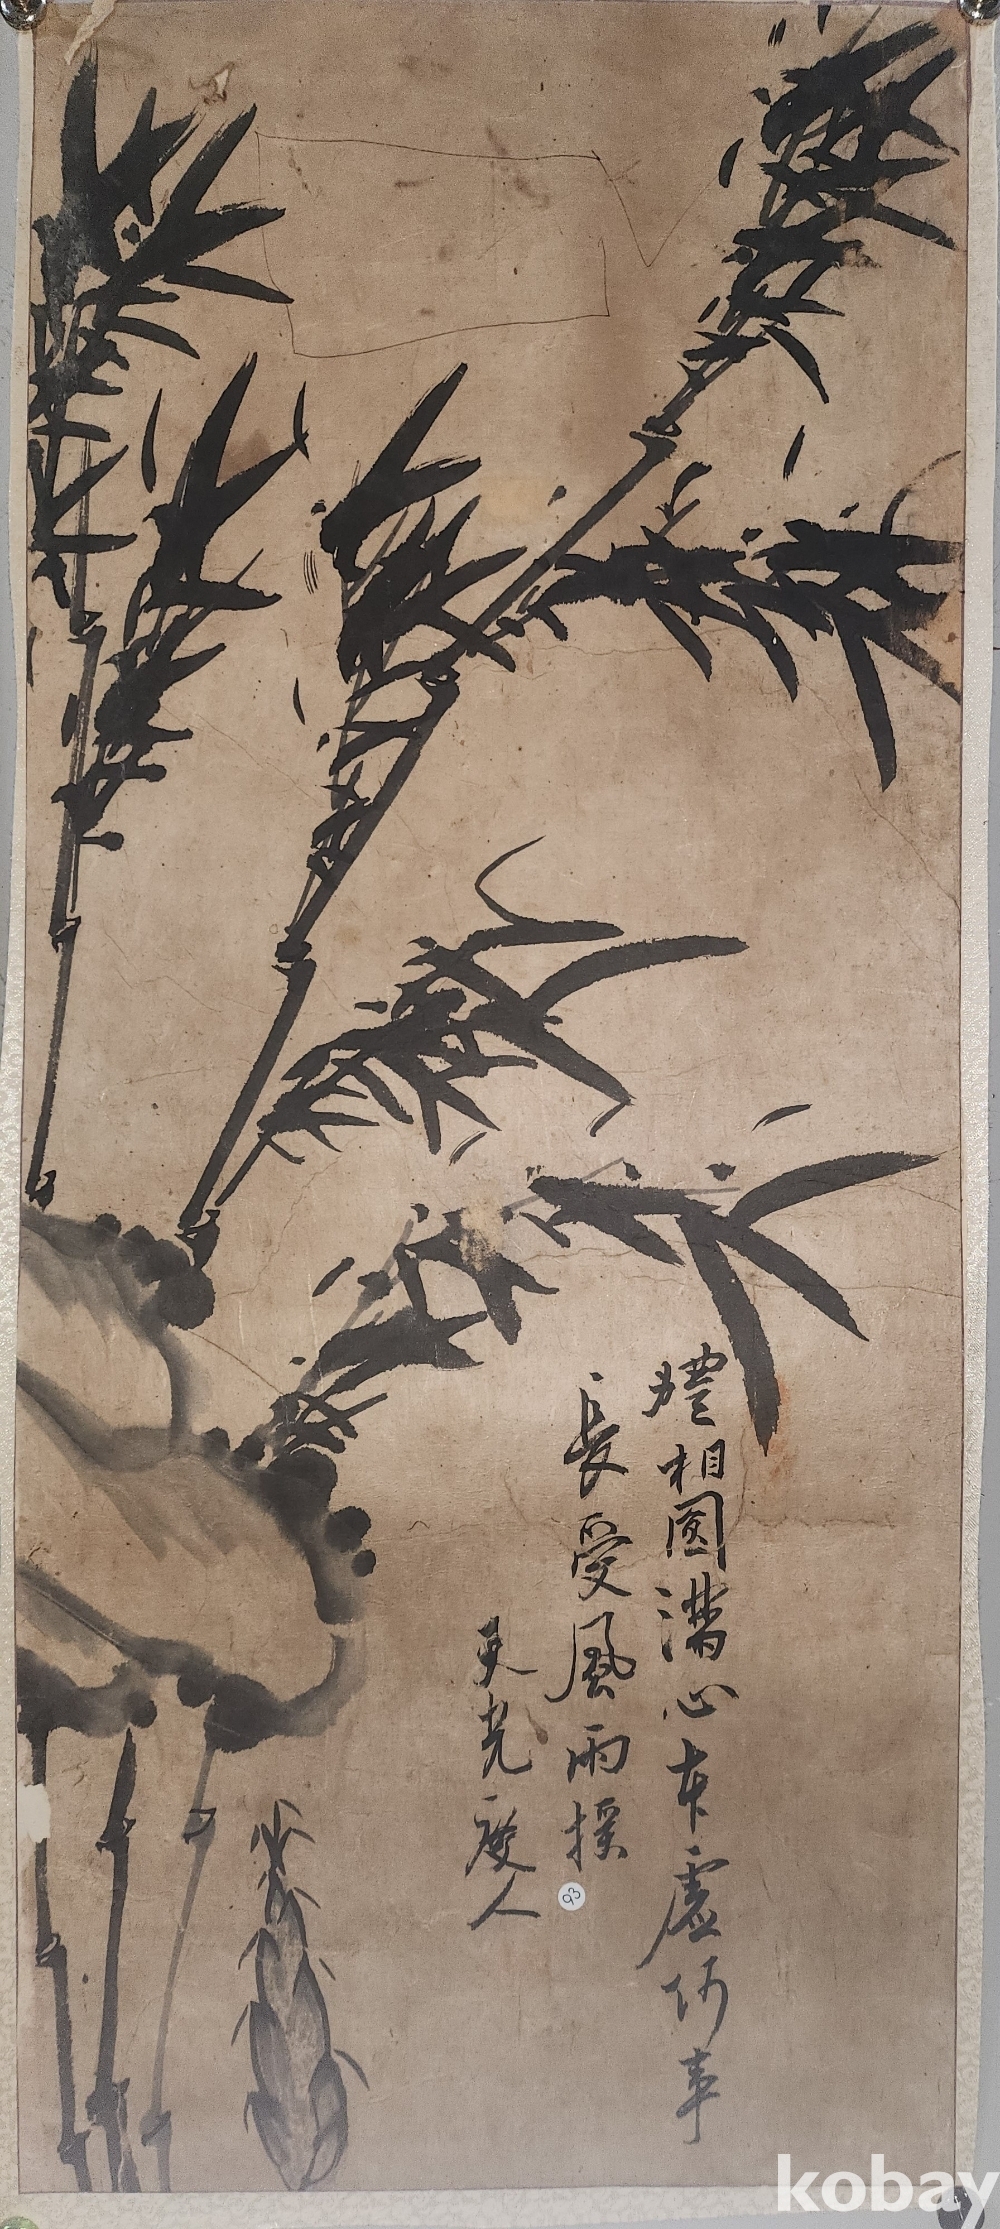 體相圓滿心本虛何事
長受風雨撲
天光慶人
93
kobay